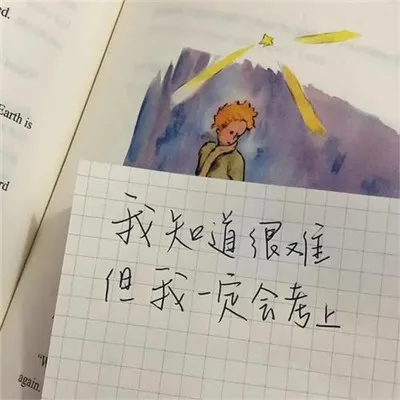 rd.
Earth is
rd
我知道很难
但我一定会考上
"W
again.